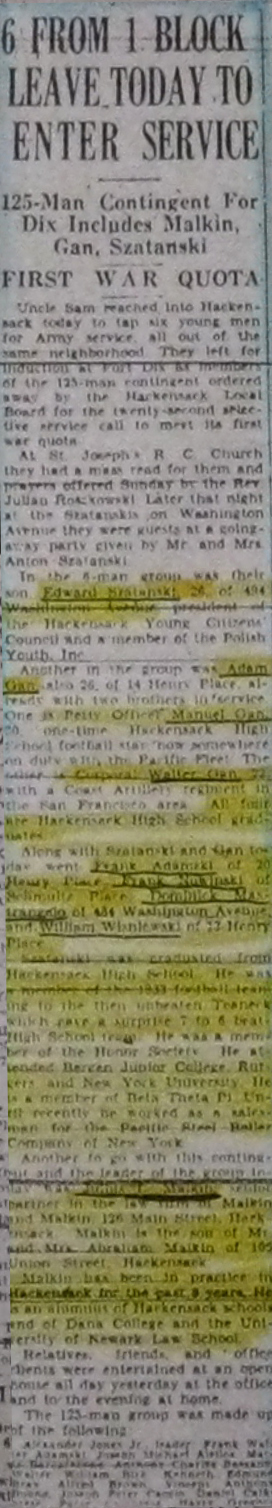 6 FROM 1 BLOCK
LEAVE TODAY TO
ENTER SERVICE
125-Man Contingent For
Dix Includes Malkin,
Gan, Szatanski
FIRST WAR QUOTA
Uncle Sam reached into Hacken-
sack today to tap six young men
for Army service, all out of the
same neighborhood. They left for
induction at Fort Dix as members
of the 125-man contingent ordered
away by the Hackensack Local
Board for the twenty-second selec-
tive service call to meet its first
war quota.
At St. Joseph's R. C. Church
they had a mass read for them and
prayers offered Sunday by the Rev.
Julian Later that night
at the Szatanskis on Washington
Avenue they were guests at a going-
away party given by Mr. and Mrs.
Anton Szatanski.
In the 6-man group was their
son Edward Szatanski, 26, of 494
Washington Avenue, president of
the Hackensack Young Citizens'
Council and a member of the Polish
Youth, Inc.
Another in the group was Adam
Gan, also 26, of 14 Henry Place, al-
ready with two brothers in service.
One is Petty Officer Manuel Gan,
20, one-time Hackensack High
School football star now somewhere
on duty with the Pacific Fleet. The
other is Corporal Walter Gan, 22,
with a Coast Artillery regiment in
the San Francisco area. All four
are Hackensack High School grad-
uates.
Along with Szatanski and Gan to-
day went Frank Adamski of 20
Henry Place, Frank of
Place, Dominick Mas-
trangelo of 484 Washington Avenue,
and William Wisniewski of 22 Henry
Place.
Szatanski was graduated from
Hackensack High School. He was
a member of the 1933 football team
which gave a surprise 7 to 6 beat-
ing to the then unbeaten Teaneck
High School team. He was a mem-
ber of the Honor Society. He at-
tended Bergen Junior College, Rut-
gers and New York University. He
is a member of Beta Theta Pi. Un-
til recently he worked as a sales-
man for the Pacific Steel Boiler
Company of New York.
Another to go with this contin-
gent and the leader of the group to-
day was Malkin, senior
partner in the law firm of Malkin
and Malkin, 126 Main Street, Hack-
ensack. Malkin is the son of Mr.
and Mrs. Abraham Malkin of 105
Union Street, Hackensack.
Malkin has been in practice in
Hackensack for the past 8 years. He
is an alumnus of Hackensack schools
and of Dana College and the Uni-
versity of Newark Law School.
Relatives, friends, and office
clients were entertained at an open
house all day yesterday at the office
and in the evening at home.
The 123-man group was made up
of the following:
Alexander Jones Jr., leader, Frank